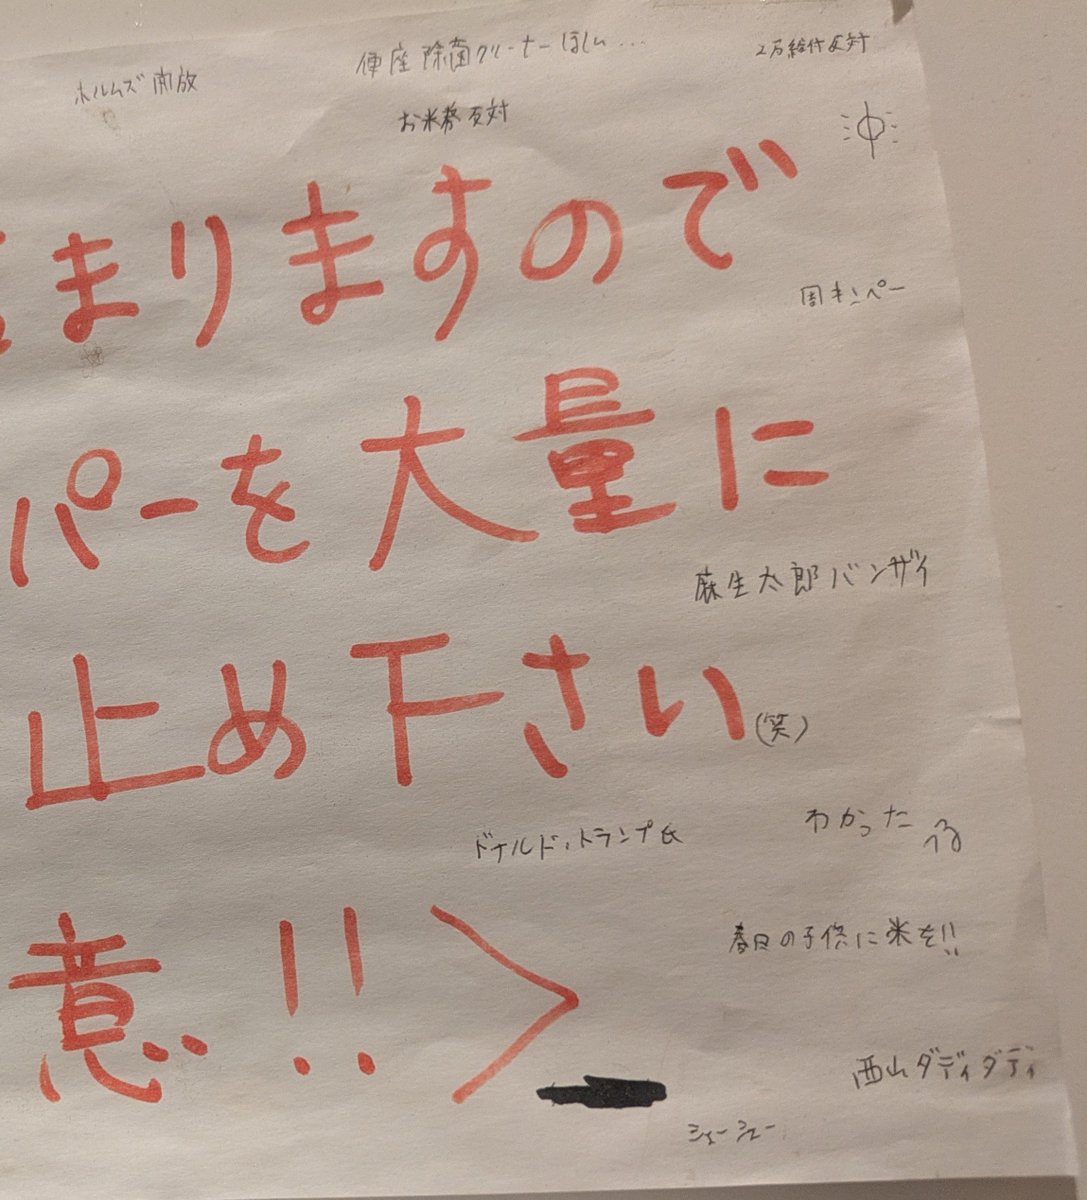 便座除菌クリーナーほしい...
2万給付反対
ホルムズ開放
お米券反対
まりますので
周キンペー
パーを大量に
麻生太郎バンザイ
止め下さい
(笑)
わかった
ドナルド・トランプ氏
春日の子供に米を!!
意!!>
西山ダディダディ
シェーシェー